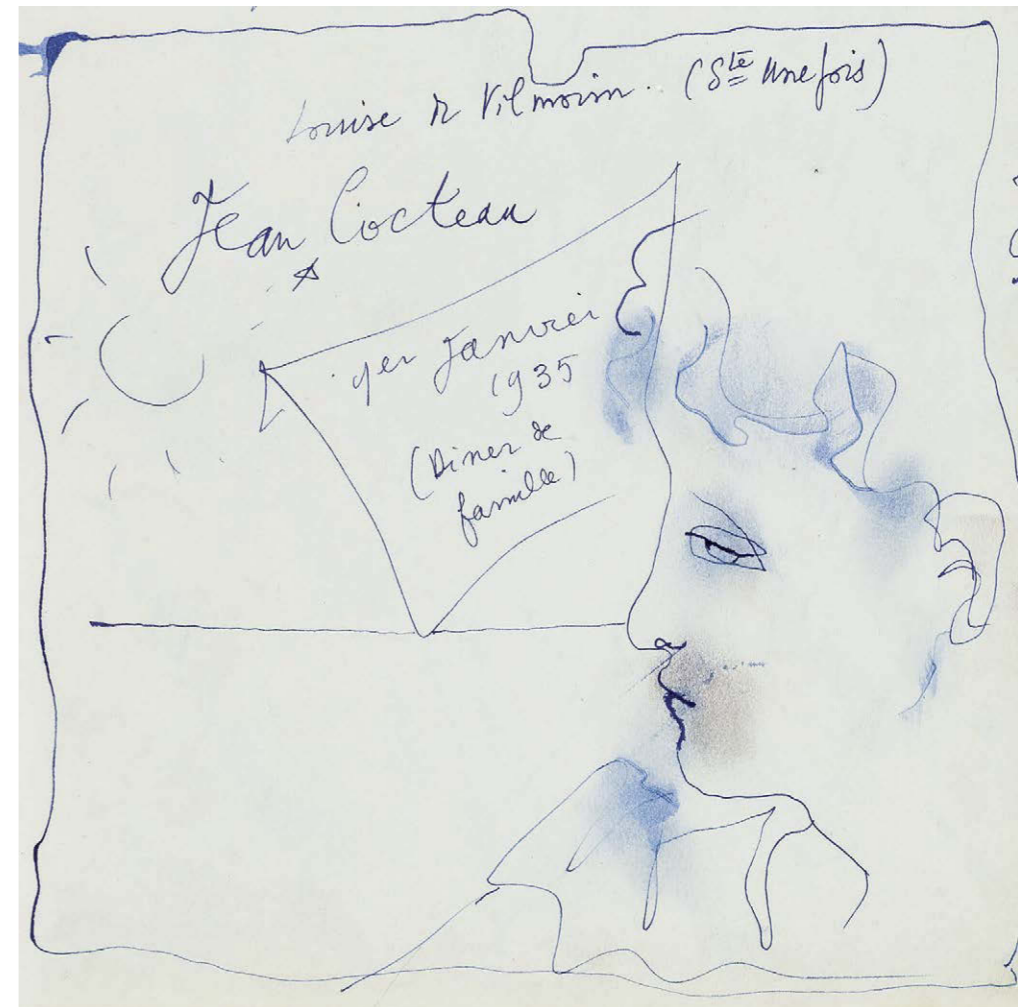 Louise de Vilmorin. (Ste Unefois)
Jean Cocteau
1er Janvier
1935
(Diner de
famille)